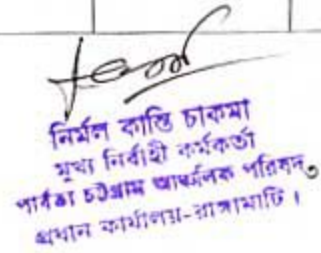 নির্মল কান্তি চাকমা
মুখ্য নির্বাহী কর্মকর্তা
পার্বত্য চট্টগ্রাম আঞ্চলিক পরিষদ,
প্রধান কার্যালয়-রাঙ্গামাটি।